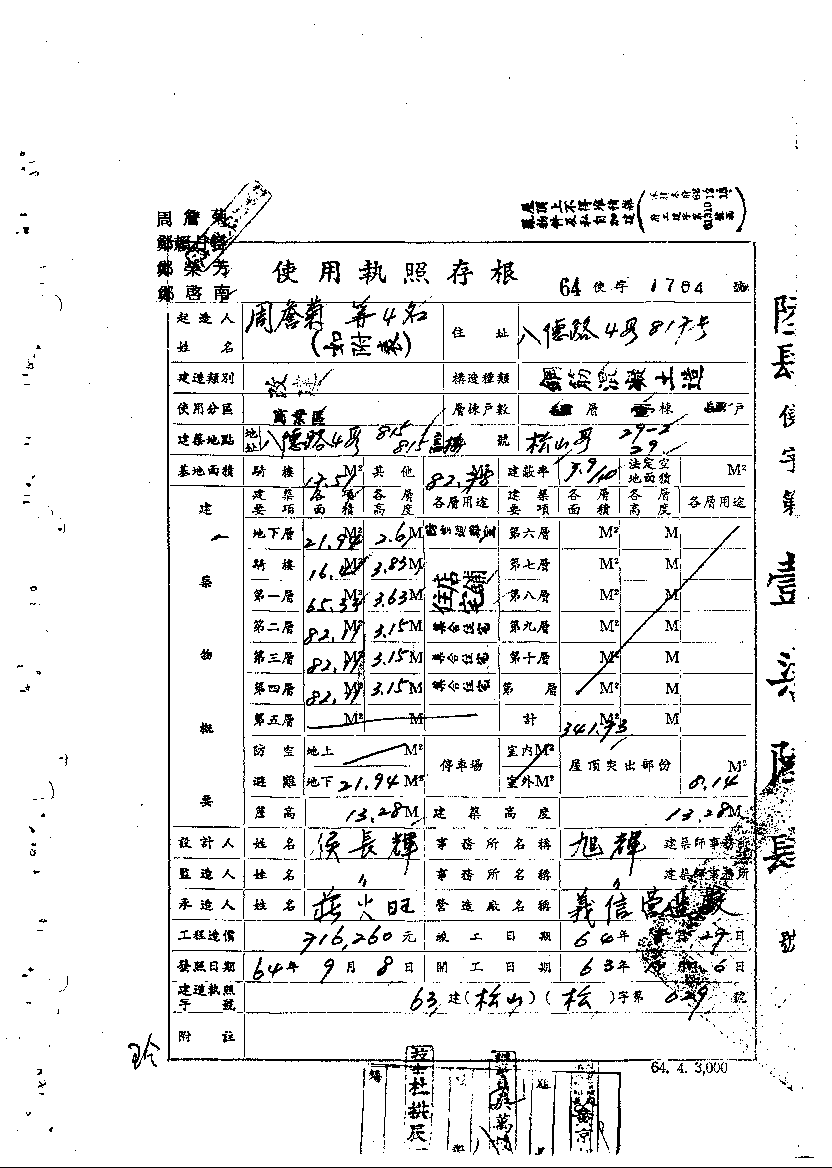 屋頂上不得堆積雜
物件及私自加建
周詹菊
鄭榮芳
鄭啓南
使用執照存根
64 使字 1764 號
起造人姓名 周詹菊 等4名 (如附表) 住址 八德路4段817号
建造類別 改建 構造種類 鋼筋混凝土造
使用分區 商業區 層棟戶數 層 棟 戶
建築地點 地址 八德路4段 815 號 松山段 29-2 29
基地面積 騎樓 17.51 M² 其他 82. 建蔽率 7.9/10 法定空地面積 M²
建築物概要 建築要項 各層面積 各層高度 各層用途 建築要項 各層面積 各層高度 各層用途
地下層 21.94 M² 2.6 M 第六層 M² M
騎樓 16.4 M² 3.83 M 第七層 M² M
第一層 65.33 M² 3.63 M 住宅店舖 第八層 M² M
第二層 82.77 M² 3.15 M 集合住宅 第九層 M² M
第三層 82.77 M² 3.15 M 集合住宅 第十層 M² M
第四層 82.77 M² 3.15 M 集合住宅 第 層 M² M
第五層 M² M 計 341.93 M² M
防空避難 地上 M² 停車場 室內 M² 屋頂突出部份 M²
地下 21.94 M² 室外 M² 8.14
簷高 13.28 M 建築高度 13.28 M
設計人 姓名 侯長輝 事務所名稱 旭輝 建築師事務所
監造人 姓名 〃 事務所名稱 〃 建築師事務所
承造人 姓名 莊火旺 營造廠名稱 義信營造廠
工程造價 716,260 元 竣工日期 64年 月 29日
發照日期 64年 9月 8日 開工日期 63年 月 6日
建造執照字號 63 建(松山)(松)字第 629 號
附註
64. 4. 3,000
使字第
號